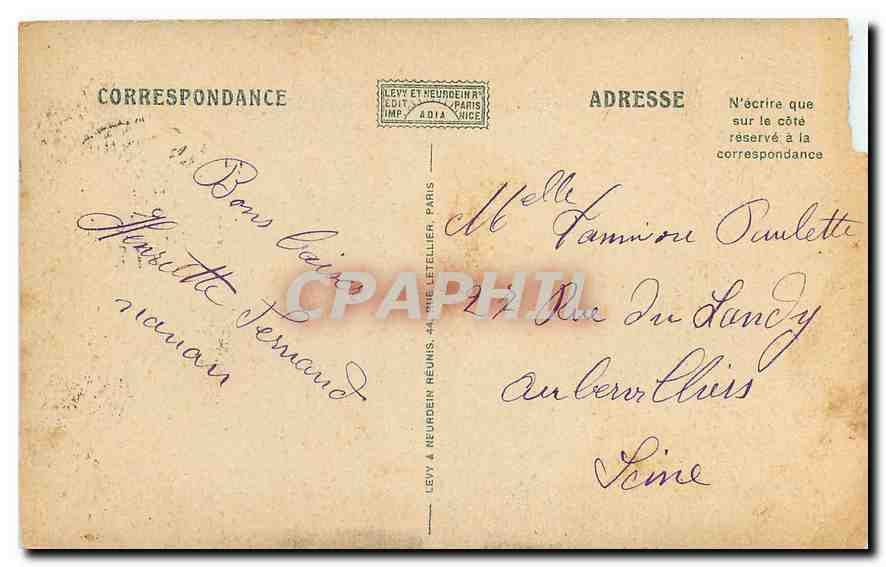 CORRESPONDANCE
LEVY ET NEURDEIN Rs
EDIT PARIS
IMP ADIA NICE
ADRESSE
N'écrire que
sur le côté
réservé à la
correspondance
Bons baisers
Henriette Fernand
LEVY & NEURDEIN RÉUNIS, 44, RUE LETELLIER, PARIS
Melle Paulette
27 Rue du Landy
aubervilliers
Seine
CPAPHIL